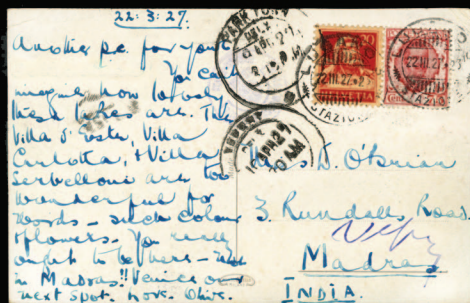 22:3:27.
Another p.c. for you
You can't
imagine how lovely
these lakes are. The
Villa d' Este, Villa
Carlotta, & Villa
Serbelloni are too
wonderful for
words - such colour
& flowers. You really
ought to be here - not
in Madras!! Venice our
next spot.
Miss D. O'Brian
3, Rundalls Road.
Vepery
Madras
INDIA.
PARK TOWN
20
22 III 27
STAZIONE